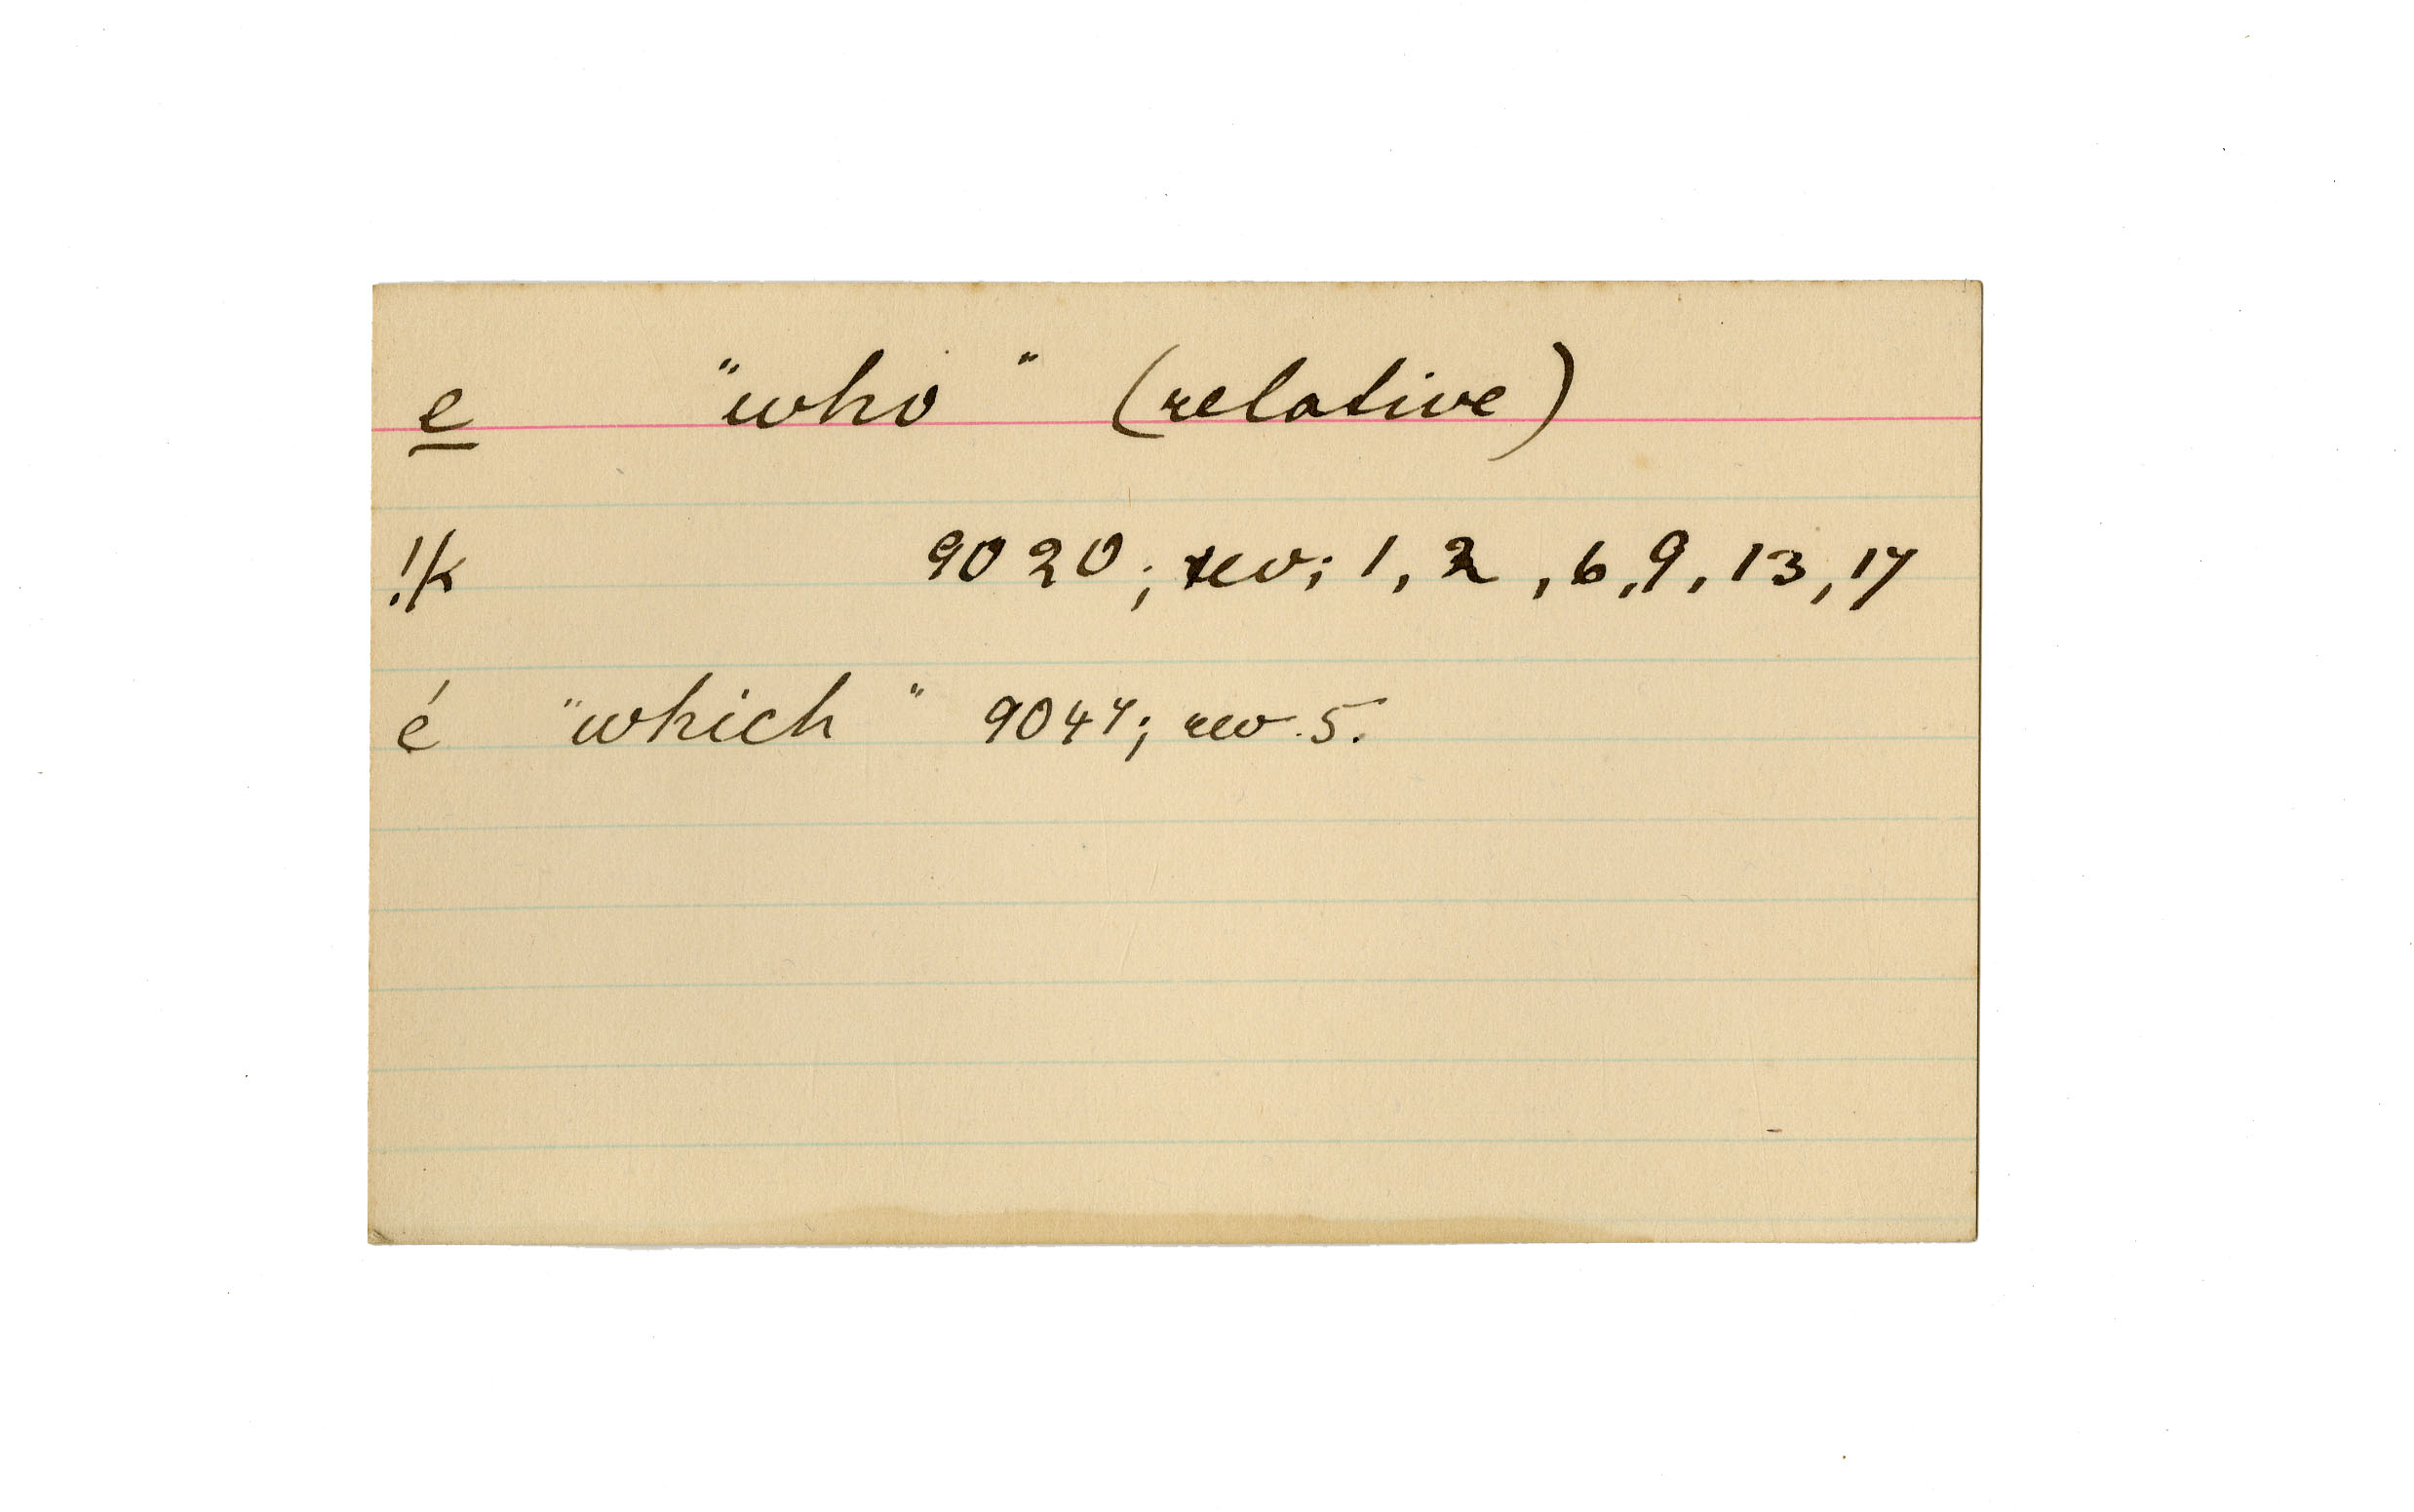 e "who" (relative)
!k 9020; rev; 1, 2, 6, 9, 13, 17
é "which" 9047; rev. 5.